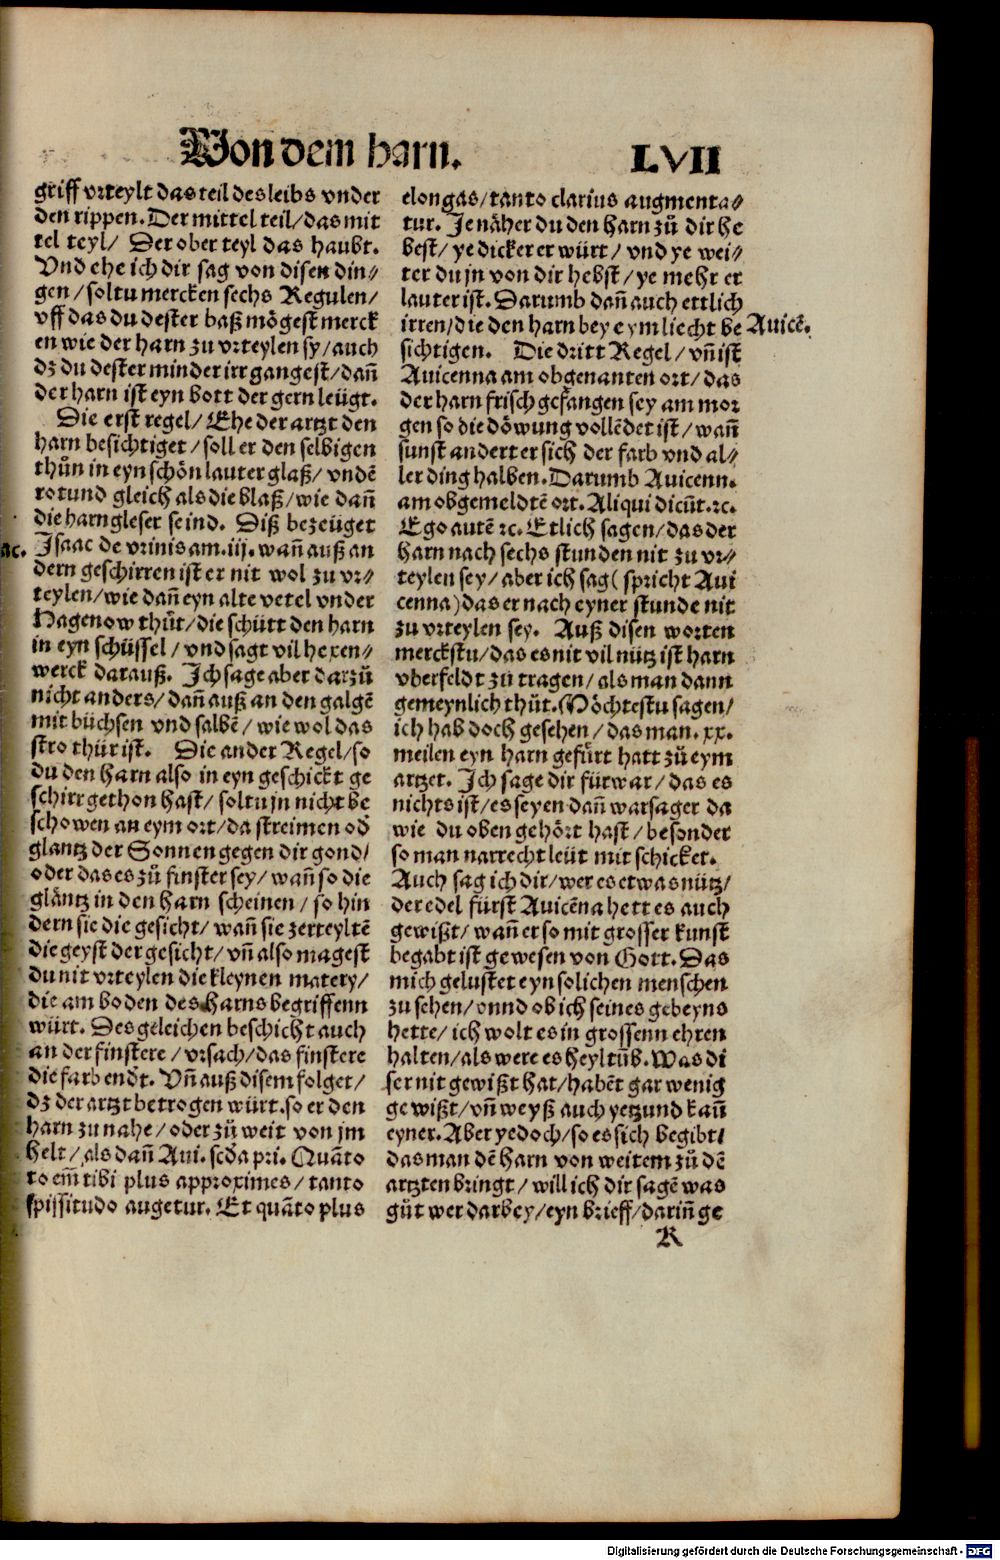 Von dem harn.
LVII
griff vrteylt das teil des leibs vnder
den rippen. Der mittel teil/das mit
tel teyl/ Der ober teyl das haubt.
Vnd ehe ich dir sag von disen din⸗
gen/soltu mercken sechs Regulen/
vff das du dester baß mögest merck
en wie der harn zu vrteylen sy/auch
dz du dester minder irr gangest/dañ
der harn ist eyn bott der gern leügt.
Die erst regel/Ehe der artzt den
harn besichtiget/soll er den selbigen
thůn in eyn schön lauter glaß/vndē
rotund gleich als die blaß/wie dañ
die harngleser seind. Diß bezeüget
ac.
Isaac de vrinis am.iij. wañ auß an
dern geschirren ist er nit wol zu vr⸗
teylen/wie dañ eyn alte vetel vnder
Hagenow thůt/die schütt den harn
in eyn schüssel/vnd sagt vil hexen⸗
werck darauß. Ich sage aber darzů
nicht anders/dañ auß an den galgē
mit büchsen vnd salbē/wie wol das
stro thür ist. Die ander Regel/so
du den harn also in eyn geschickt ge
schirr gethon hast/soltu jn nicht be
schowen an eym ort/da streimen oď
glantz der Sonnen gegen dir gond/
oder das es zů finster sey/wañ so die
gläntz in den harn scheinen/so hin
dern sie die gesicht/wañ sie zerteyltē
die geyst der gesicht/vñ also magest
du nit vrteylen die kleynen matery/
die am boden des harns begriffenn
würt. Des geleichen beschicht auch
an der finstere/vrsach/das finstere
die farb endt. Vñ auß disem folget/
dz der artzt betrogen würt.so er den
harn zu nahe/oder zů weit von jm
helt/als dañ Aui. scďa pri. Quāto
to em̃ tibi plus approximes/tanto
spissitudo augetur. Et quāto plus
elongas/tanto clarius augmenta⸗
tur. Je näher du den harn zů dir he
best/ye dicker er würt/vnd ye wei⸗
ter du jn von dir hebst/ye mehr er
lauter ist. Darumb dañ auch ettlich
irren/die den harn bey eym liecht be
Auicē.
sichtigen. Die dritt Regel/vñ ist
Auicenna am obgenanten ort/das
der harn frisch gefangen sey am mor
gen so die döwung vollēdet ist/wañ
sunst andert er sich der farb vnd al⸗
ler ding halben. Darumb Auicenn.
am obgemeldtē ort. Aliqui dicūt.ꝛc.
Ego autē ꝛc. Etlich sagen/das der
harn nach sechs stunden nit zu vr⸗
teylen sey/aber ich sag(spricht Aui
cenna)das er nach eyner stunde nit
zu vrteylen sey. Auß disen worten
merckstu/das es nit vil nütz ist harn
vberfeldt zů tragen/als man dann
gemeynlich thůt. Möchtestu sagen/
ich hab doch gesehen/das man.xx.
meilen eyn harn gefürt hatt zů eym
artzet. Ich sage dir fürwar/das es
nichts ist/es seyen dañ warsager da
wie du oben gehört hast/besonder
so man narrecht leüt mit schicket.
Auch sag ich dir/wer es etwas nütz/
der edel fürst Auicēna hett es auch
gewißt/wañ er so mit grosser kunst
begabt ist gewesen von Gott. Das
mich gelustet eyn solichen menschen
zu sehen/onnd ob ich seines gebeyns
hette/ich wolt es in grossenn ehren
halten/als were es heyltũb. Was di
ser nit gewißt hat/habēt gar wenig
gewißt/vñ weyß auch yetzund kañ
eyner. Aber yedoch/so es sich begibt/
das man dē harn von weitem zů dē
artzten bringt/will ich dir sagē was
gůt wer darbey/eyn brieff/dariñ ge
K
Digitalisierung gefördert durch die Deutsche Forschungsgemeinschaft - DFG